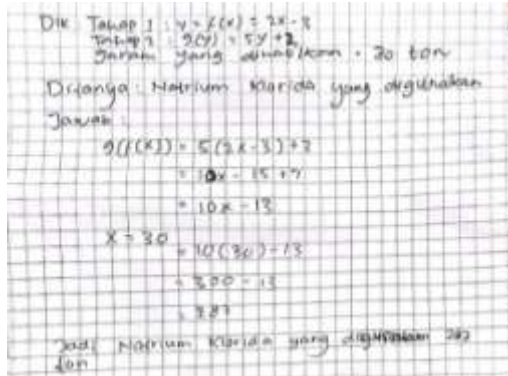 Dik Tahap 1 : y = f(x) = 2x - 3
Tahap 2 : g(y) = 5y + 2
Garam yang dihasilkan = 30 ton
Ditanya : Natrium klorida yang digunakan
Jawab :
g(f(x)) = 5(2x - 3) + 2
= 10x - 15 + 2
= 10x - 13
x = 30
= 10(30) - 13
= 300 - 13
= 287
Jadi Natrium Klorida yang digunakan 287
ton